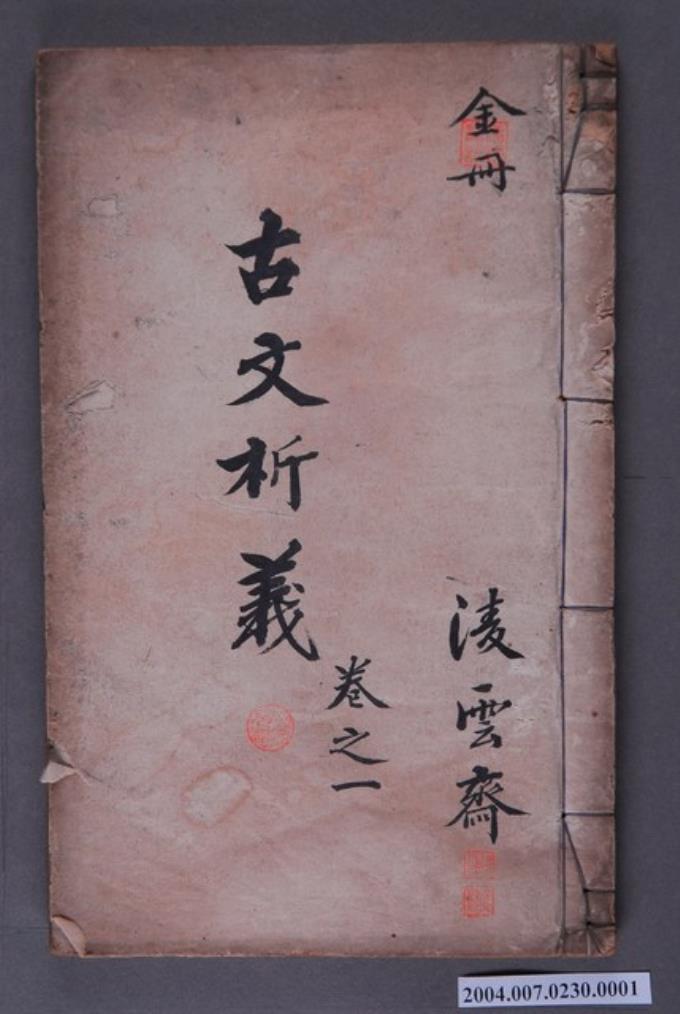 金冊
淩雲齋
古文析義
卷之一
2004.007.0230.0001